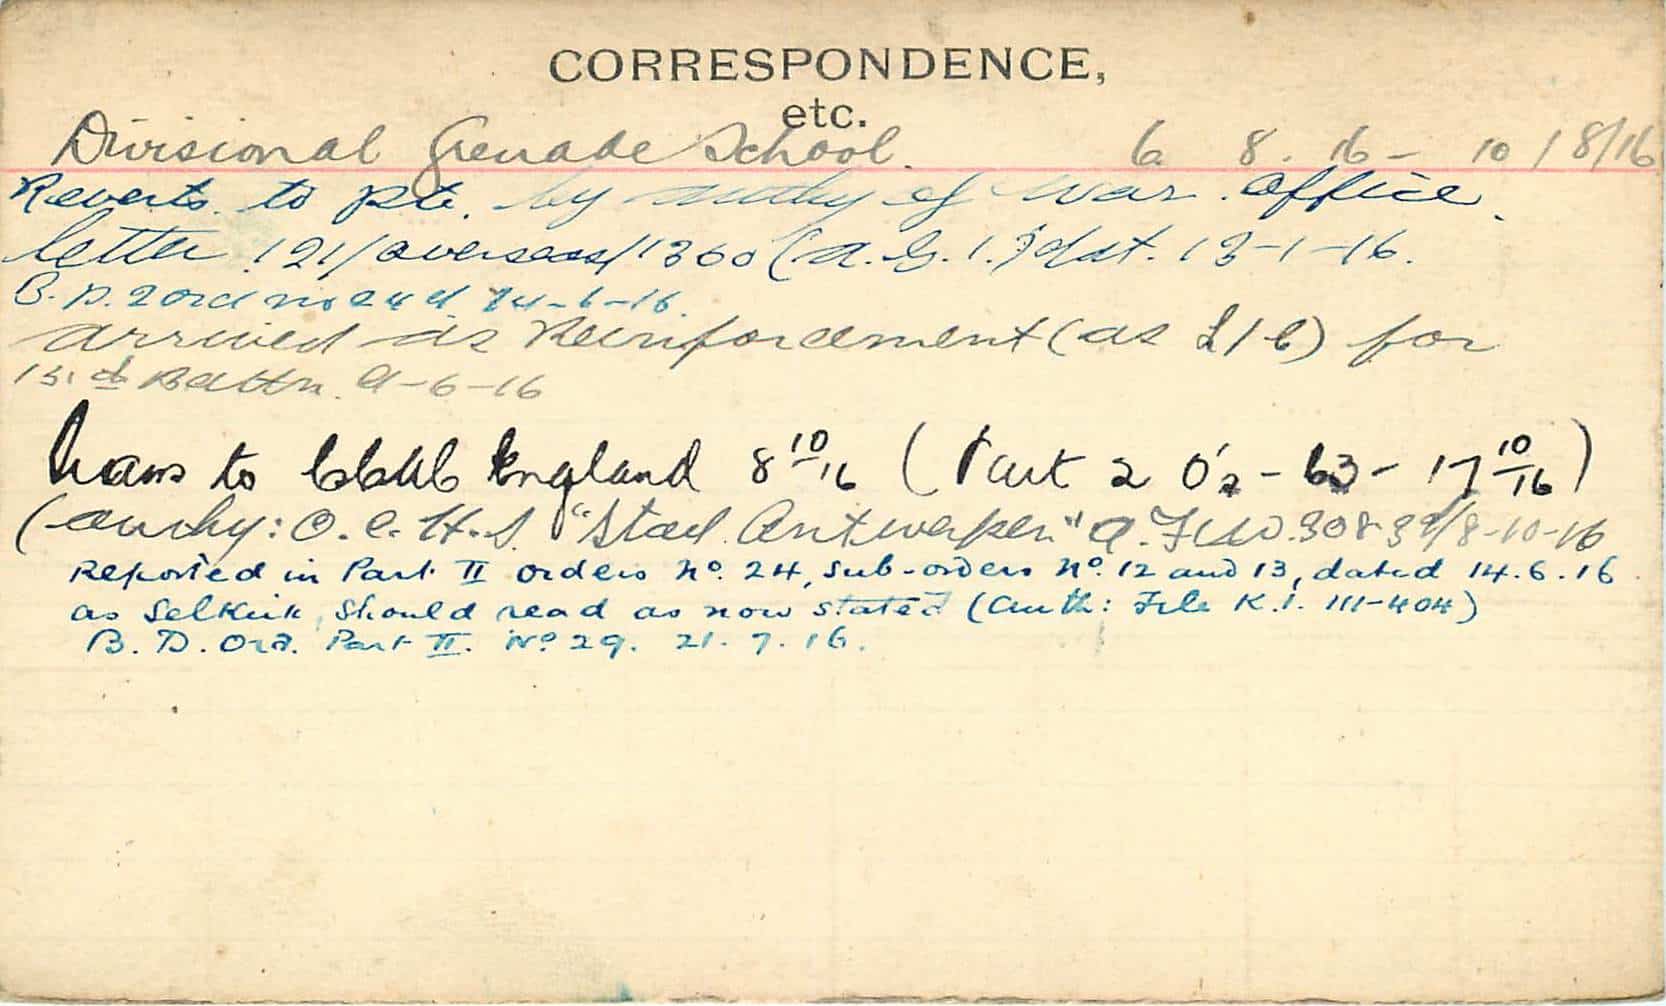 CORRESPONDENCE,
etc.
Divisional Grenade School. 6 8. 16 - 10/8/16
Reverts to pte. by authy of War Office
letter 121/overseas/1360 (A.G.1.) dat. 13-1-16.
B.D. 2 ord no 24 d 14-6-16.
arrived as Reinforcement (as Sgt) for
13th Battn. 9-6-16
Trans to England 8 10/16 (Part 2 O's - 63 - 17 10/16)
(authy: O.C. H.S. "Stad Antwerpen" A.F.W. 8-10-16
Reported in Part II orders No. 24, sub-orders No. 12 and 13, dated 14.6.16
as Selkirk, should read as now stated (Auth: File K.1. 111-404)
B.D. Ord. Part II. No 29. 21.7.16.